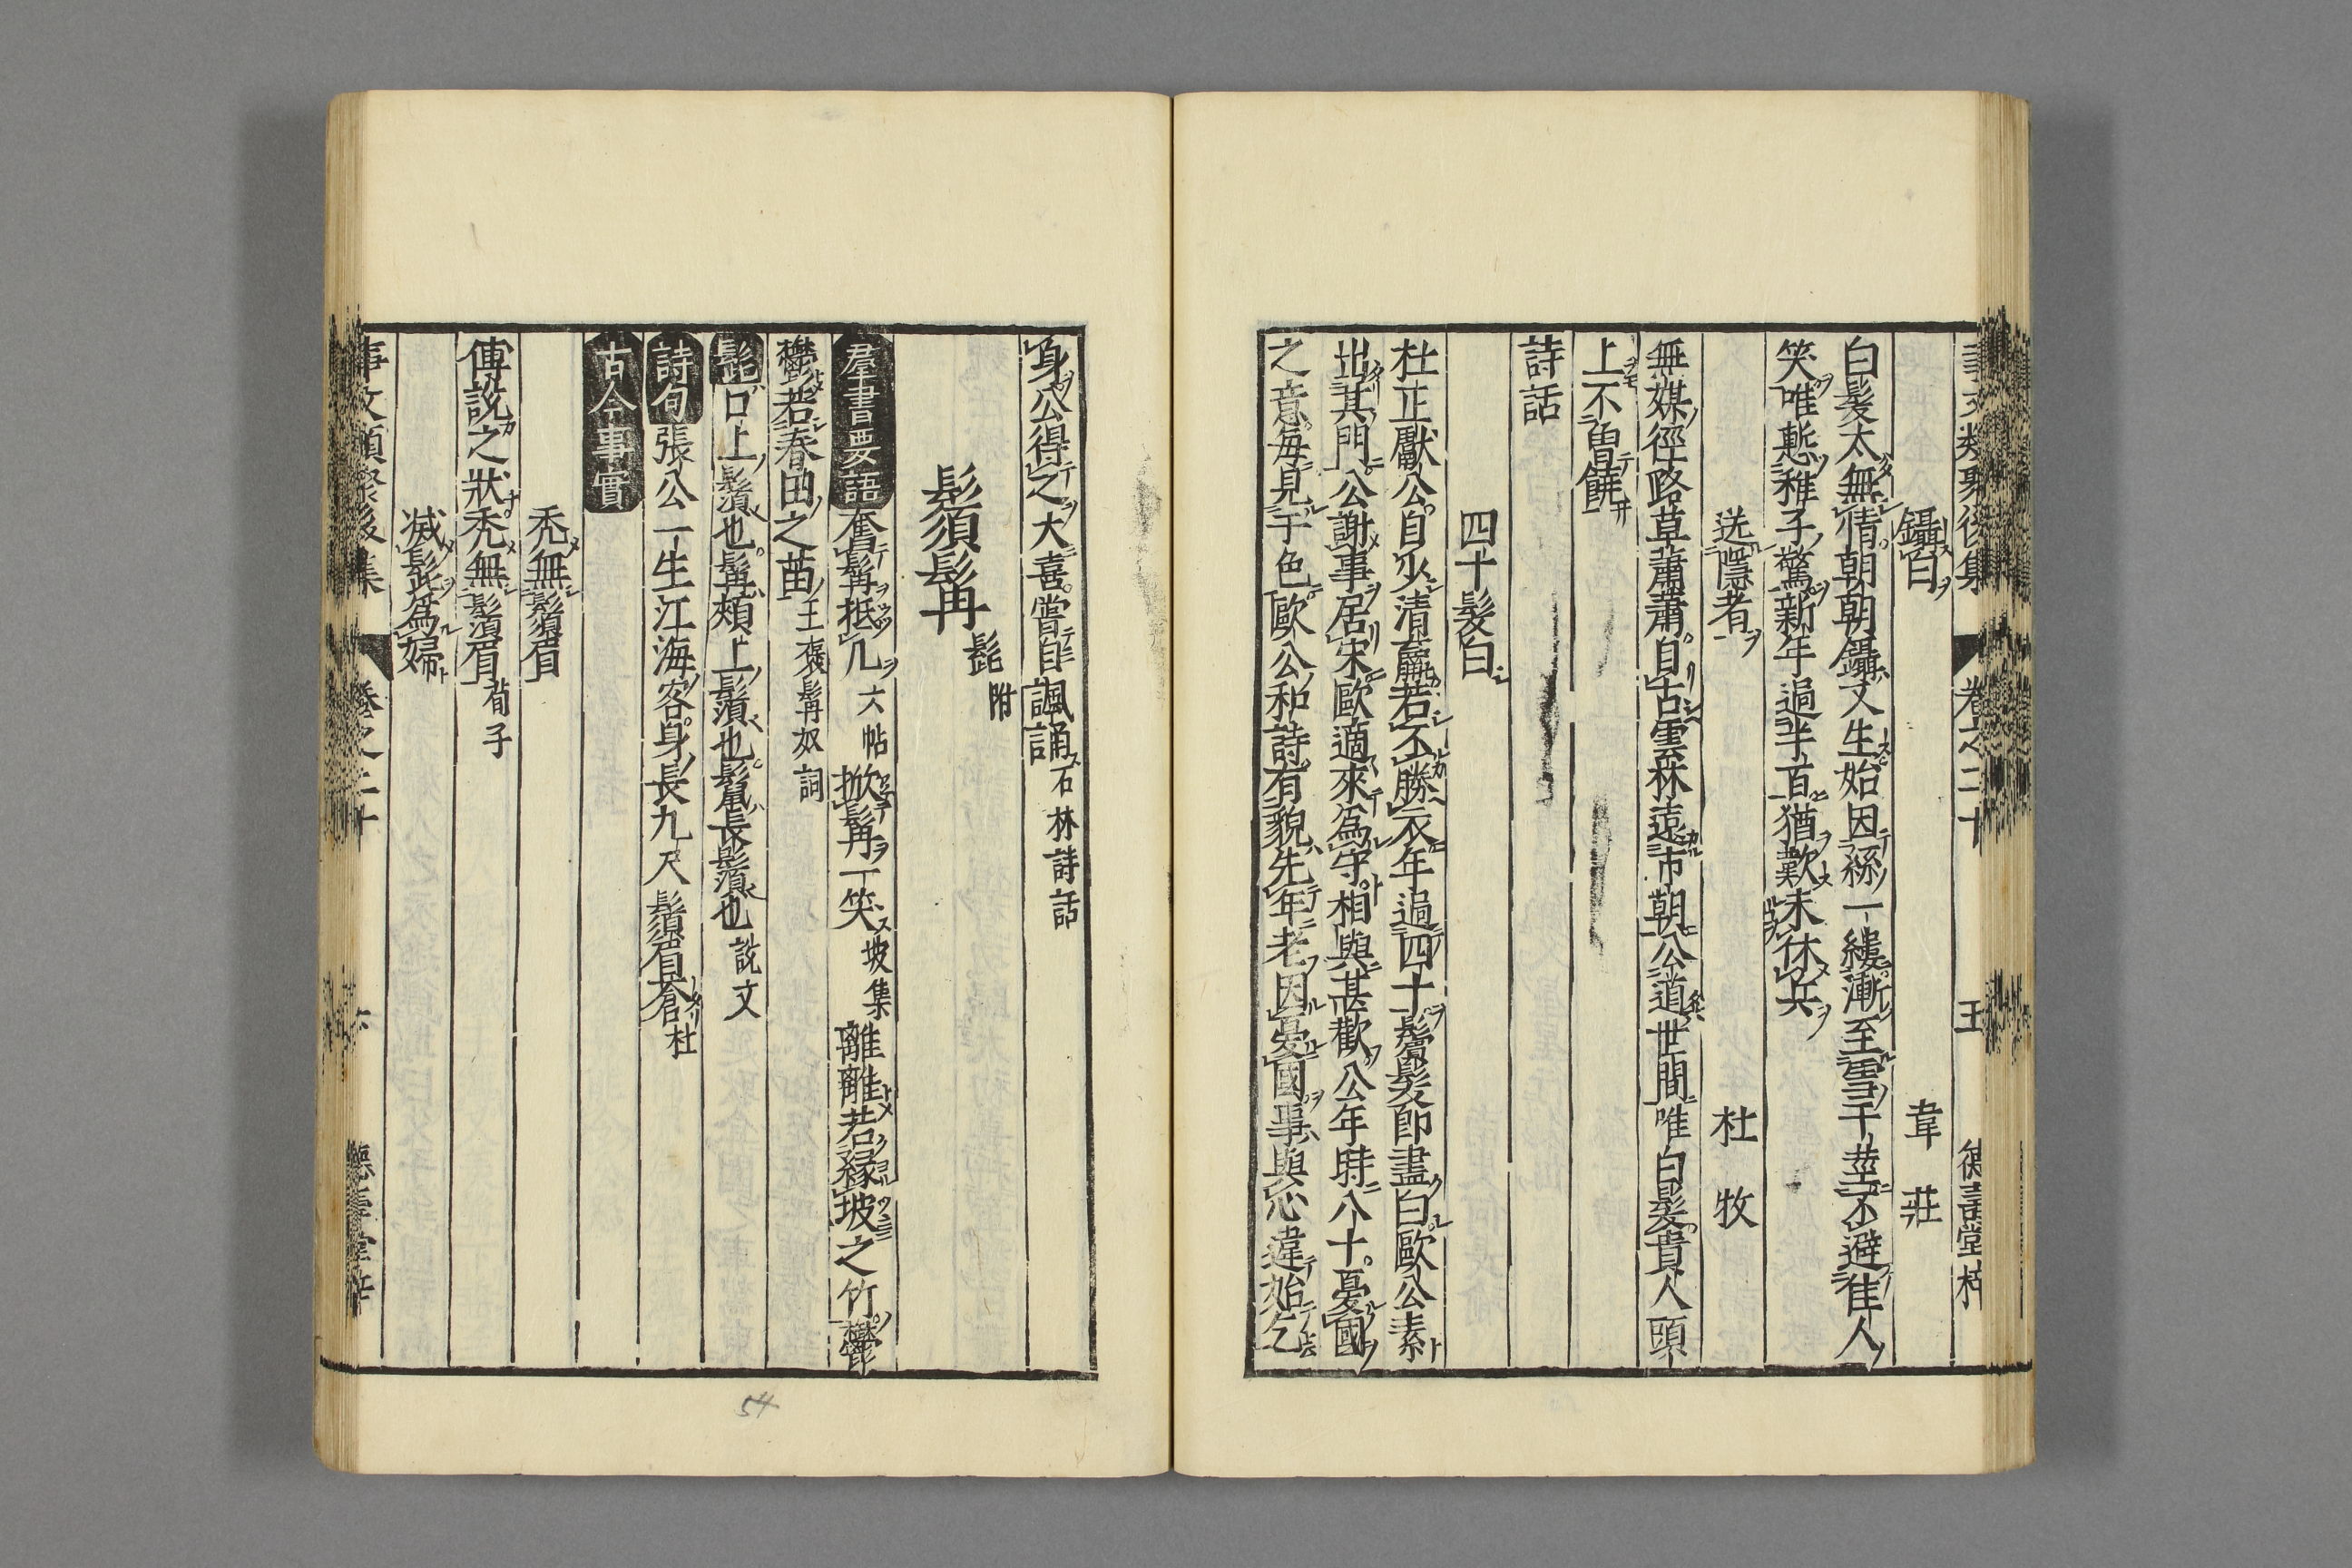 事文類聚後集 卷之二十 五 德壽堂梓
鑷白 韋莊
白髮太無情朝朝鑷又生始因絲一縷漸至雪千莖不避佳人
笑唯慙稚子驚新年過半百猶歎未休兵
送隱者 杜牧
無媒徑路草蕭蕭自古雲林遠市朝公道世間唯白髮貴人頭
上不曾饒
詩話
四十髮白
杜正獻公自少清羸若不勝衣年過四十鬚髮即盡白歐公素
出其門公謝事居宋歐適來為守相與甚歡公年時八十憂國
之意每見于色歐公和詩有貌先年老因憂國事與心違始乞
身公得之大喜嘗自諷誦石林詩話
鬚髯髭附
羣書要語奮髯抵几六帖掀髯一笑坡集離離若緣坡之竹鬱
鬱若春田之苗王褒髯奴詞
髭口上鬚也髯頰上鬚也鬣長鬚也說文
詩句張公一生江海客身長九尺鬚眉蒼杜
古今事實
禿無鬚眉
傅說之狀禿無鬚眉荀子
滅髭為婦
事文類聚後集 卷之二十 六 德壽堂梓
54